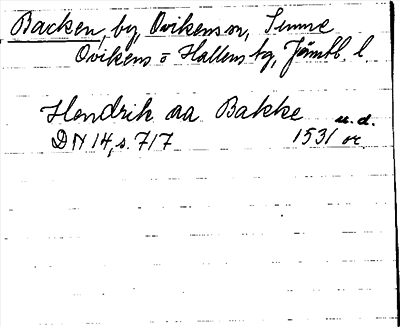 Backen, by, Ovikens sn,
Ovikens o Hallens tg, Jämtl. l.
Hendrik aa Bakke u.d.
DN 14, s. 717 1531 or